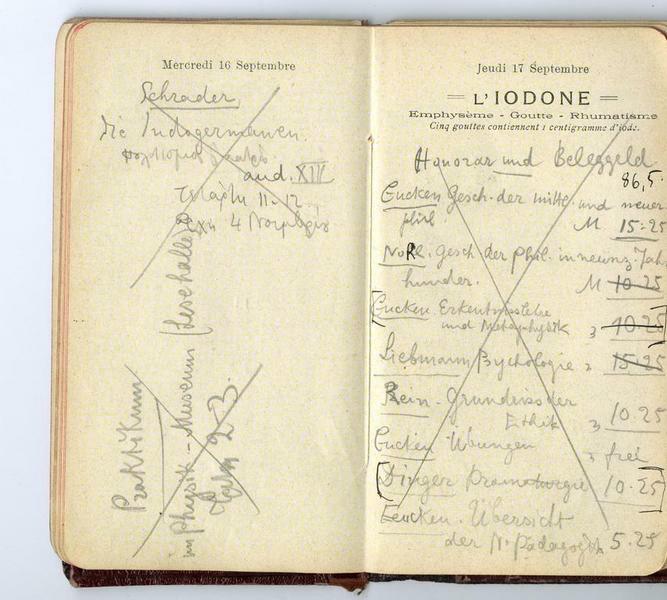 Mercredi 16 Septembre
Schrader
Die Indogermanen.
aud. XII
11-12.
4
Praktikum
im Physik-Museum (Lesehalle)
2 3.
Jeudi 17 Septembre
L'IODONE
Emphysème - Goutte - Rhumatisme
Cinq gouttes contiennent 1 centigramme d'iode.
Honorar und Beleggeld
86,5.
Eucken Gesch. der mitt. und neuer
phil. M 15-25
Nohl. Gesch der phil. in neunz. Jahr
hunder. M 10-25
Eucken Erkentnisslehre
und Metaphysik " 10-25
Liebmann Psychologie " 15-25
Rein. Grundriss der
Ethik " 10.25
Eucken Übungen " frei
Dinger Dramaturgie 10-25
Übersicht
der Pädagogik 5-25